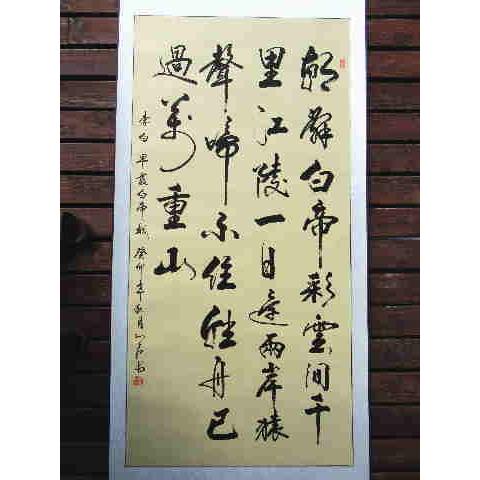 朝辭白帝彩雲間千
里江陵一日還兩岸猿
聲啼不住輕舟已
過萬重山
李白早發白帝城癸卯年秋月